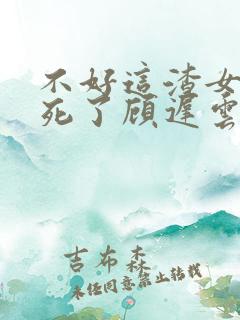 不好這渣女
死了顾遲雲
吉布森
未经同意禁止转载